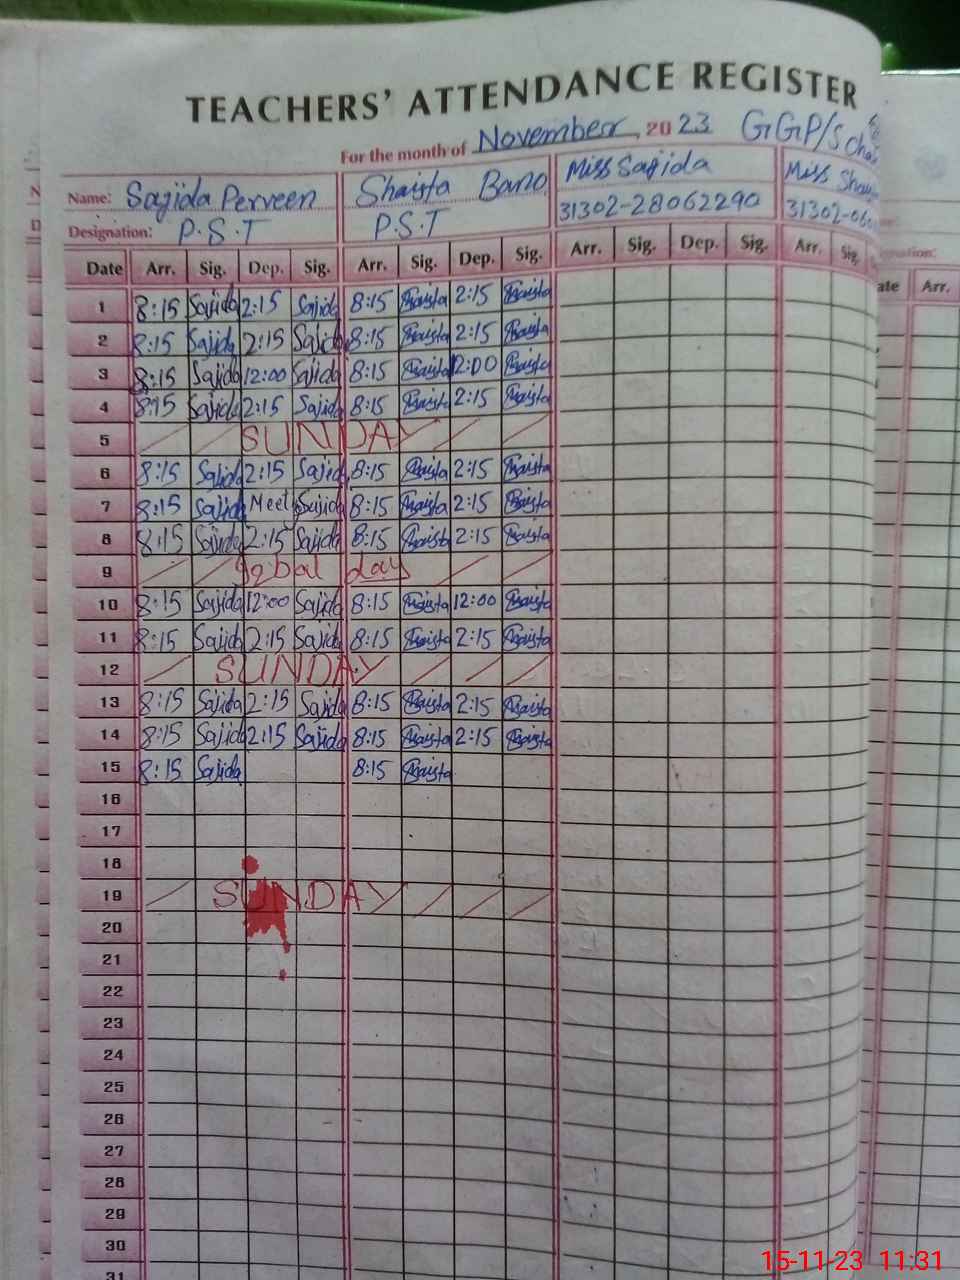 TEACHERS' ATTENDANCE REGISTER
For the month of November 2023 GGP/S
Name: Sajida Perveen Shaista Bano Miss Sajida Miss
31302-28062290 31302-060
Designation: P.S.T P.S.T
Date Arr. Sig. Dep. Sig. Arr. Sig. Dep. Sig. Arr. Sig. Dep. Sig. Arr. Sig. Arr.
1 8:15 Sajida 2:15 Sajida 8:15 Shaista 2:15 Shaista
2 8:15 Sajida 2:15 Sajida 8:15 Shaista 2:15 Shaista
3 8:15 Sajida 12:00 Sajida 8:15 Shaista 12:00 Shaista
4 8:15 Sajida 2:15 Sajida 8:15 Shaista 2:15 Shaista
5 SUNDAY
6 8:15 Sajida 2:15 Sajida 8:15 Shaista 2:15 Shaista
7 8:15 Sajida Meet Sajida 8:15 Shaista 2:15 Shaista
8 8:15 Sajida 2:15 Sajida 8:15 Shaista 2:15 Shaista
9 Iqbal day
10 8:15 Sajida 12:00 Sajida 8:15 Shaista 12:00 Shaista
11 8:15 Sajida 2:15 Sajida 8:15 Shaista 2:15 Shaista
12 SUNDAY
13 8:15 Sajida 2:15 Sajida 8:15 Shaista 2:15 Shaista
14 8:15 Sajida 2:15 Sajida 8:15 Shaista 2:15 Shaista
15 8:15 Sajida 8:15 Shaista
16
17
18
19 SUNDAY
20
21
22
23
24
25
26
27
28
29
30
31
15-11-23 11:31